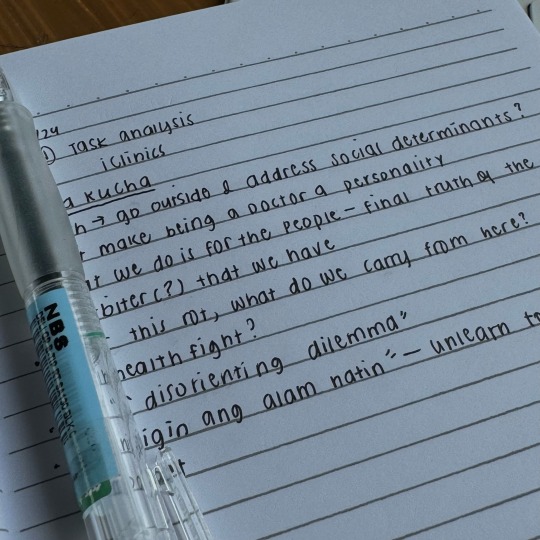 /24
① Task analysis
iclinics
a KUCHA
n → go outside & address social determinants?
t make being a Doctor a personality
at we do is for the people - final truth of the
biter(?) that we have
this rot, what do we carry from here?
health fight?
disorienting dilemma"
igin ang alam natin" - unlearn to
t
NBS